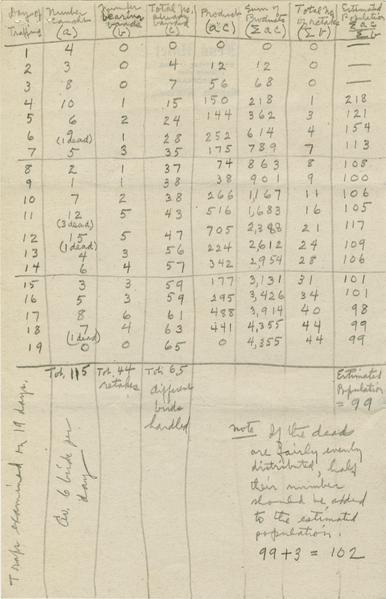 Day of Trapping Number Caught (a) Number bearing bands (b) Total No. already banded (c) Product (ac) Sum of Products Σac Total No. of retakes (Σb) Estimated Population Σac/Σb
1 4 0 0 0 0 0 —
2 3 0 4 12 12 0 —
3 8 0 7 56 68 0 —
4 10 1 15 150 218 1 218
5 6 2 24 144 362 3 121
6 9 1 28 252 614 4 154
(1 dead)
7 5 3 35 175 789 7 113
8 2 1 37 74 863 8 108
9 1 1 38 38 901 9 100
10 7 2 38 266 1,167 11 106
11 12 5 43 516 1,683 16 105
(3 dead)
12 15 5 47 705 2,388 21 117
(1 dead)
13 4 3 56 224 2,612 24 109
14 6 4 57 342 2,954 28 106
15 3 3 59 177 3,131 31 101
16 5 3 59 295 3,426 34 101
17 8 6 61 488 3,914 40 98
18 7 4 63 441 4,355 44 99
(1 dead)
19 0 0 65 0 4,355 44 99
Traps examined on 19 days.
Tot. 115
Av. 6 birds per
day
Tot. 44
retakes
Tot. 65
different
birds
handled
Estimated
Population
= 99
Note If the dead
are fairly evenly
distributed, half
their number
should be added
to the estimated
population.
99 + 3 = 102